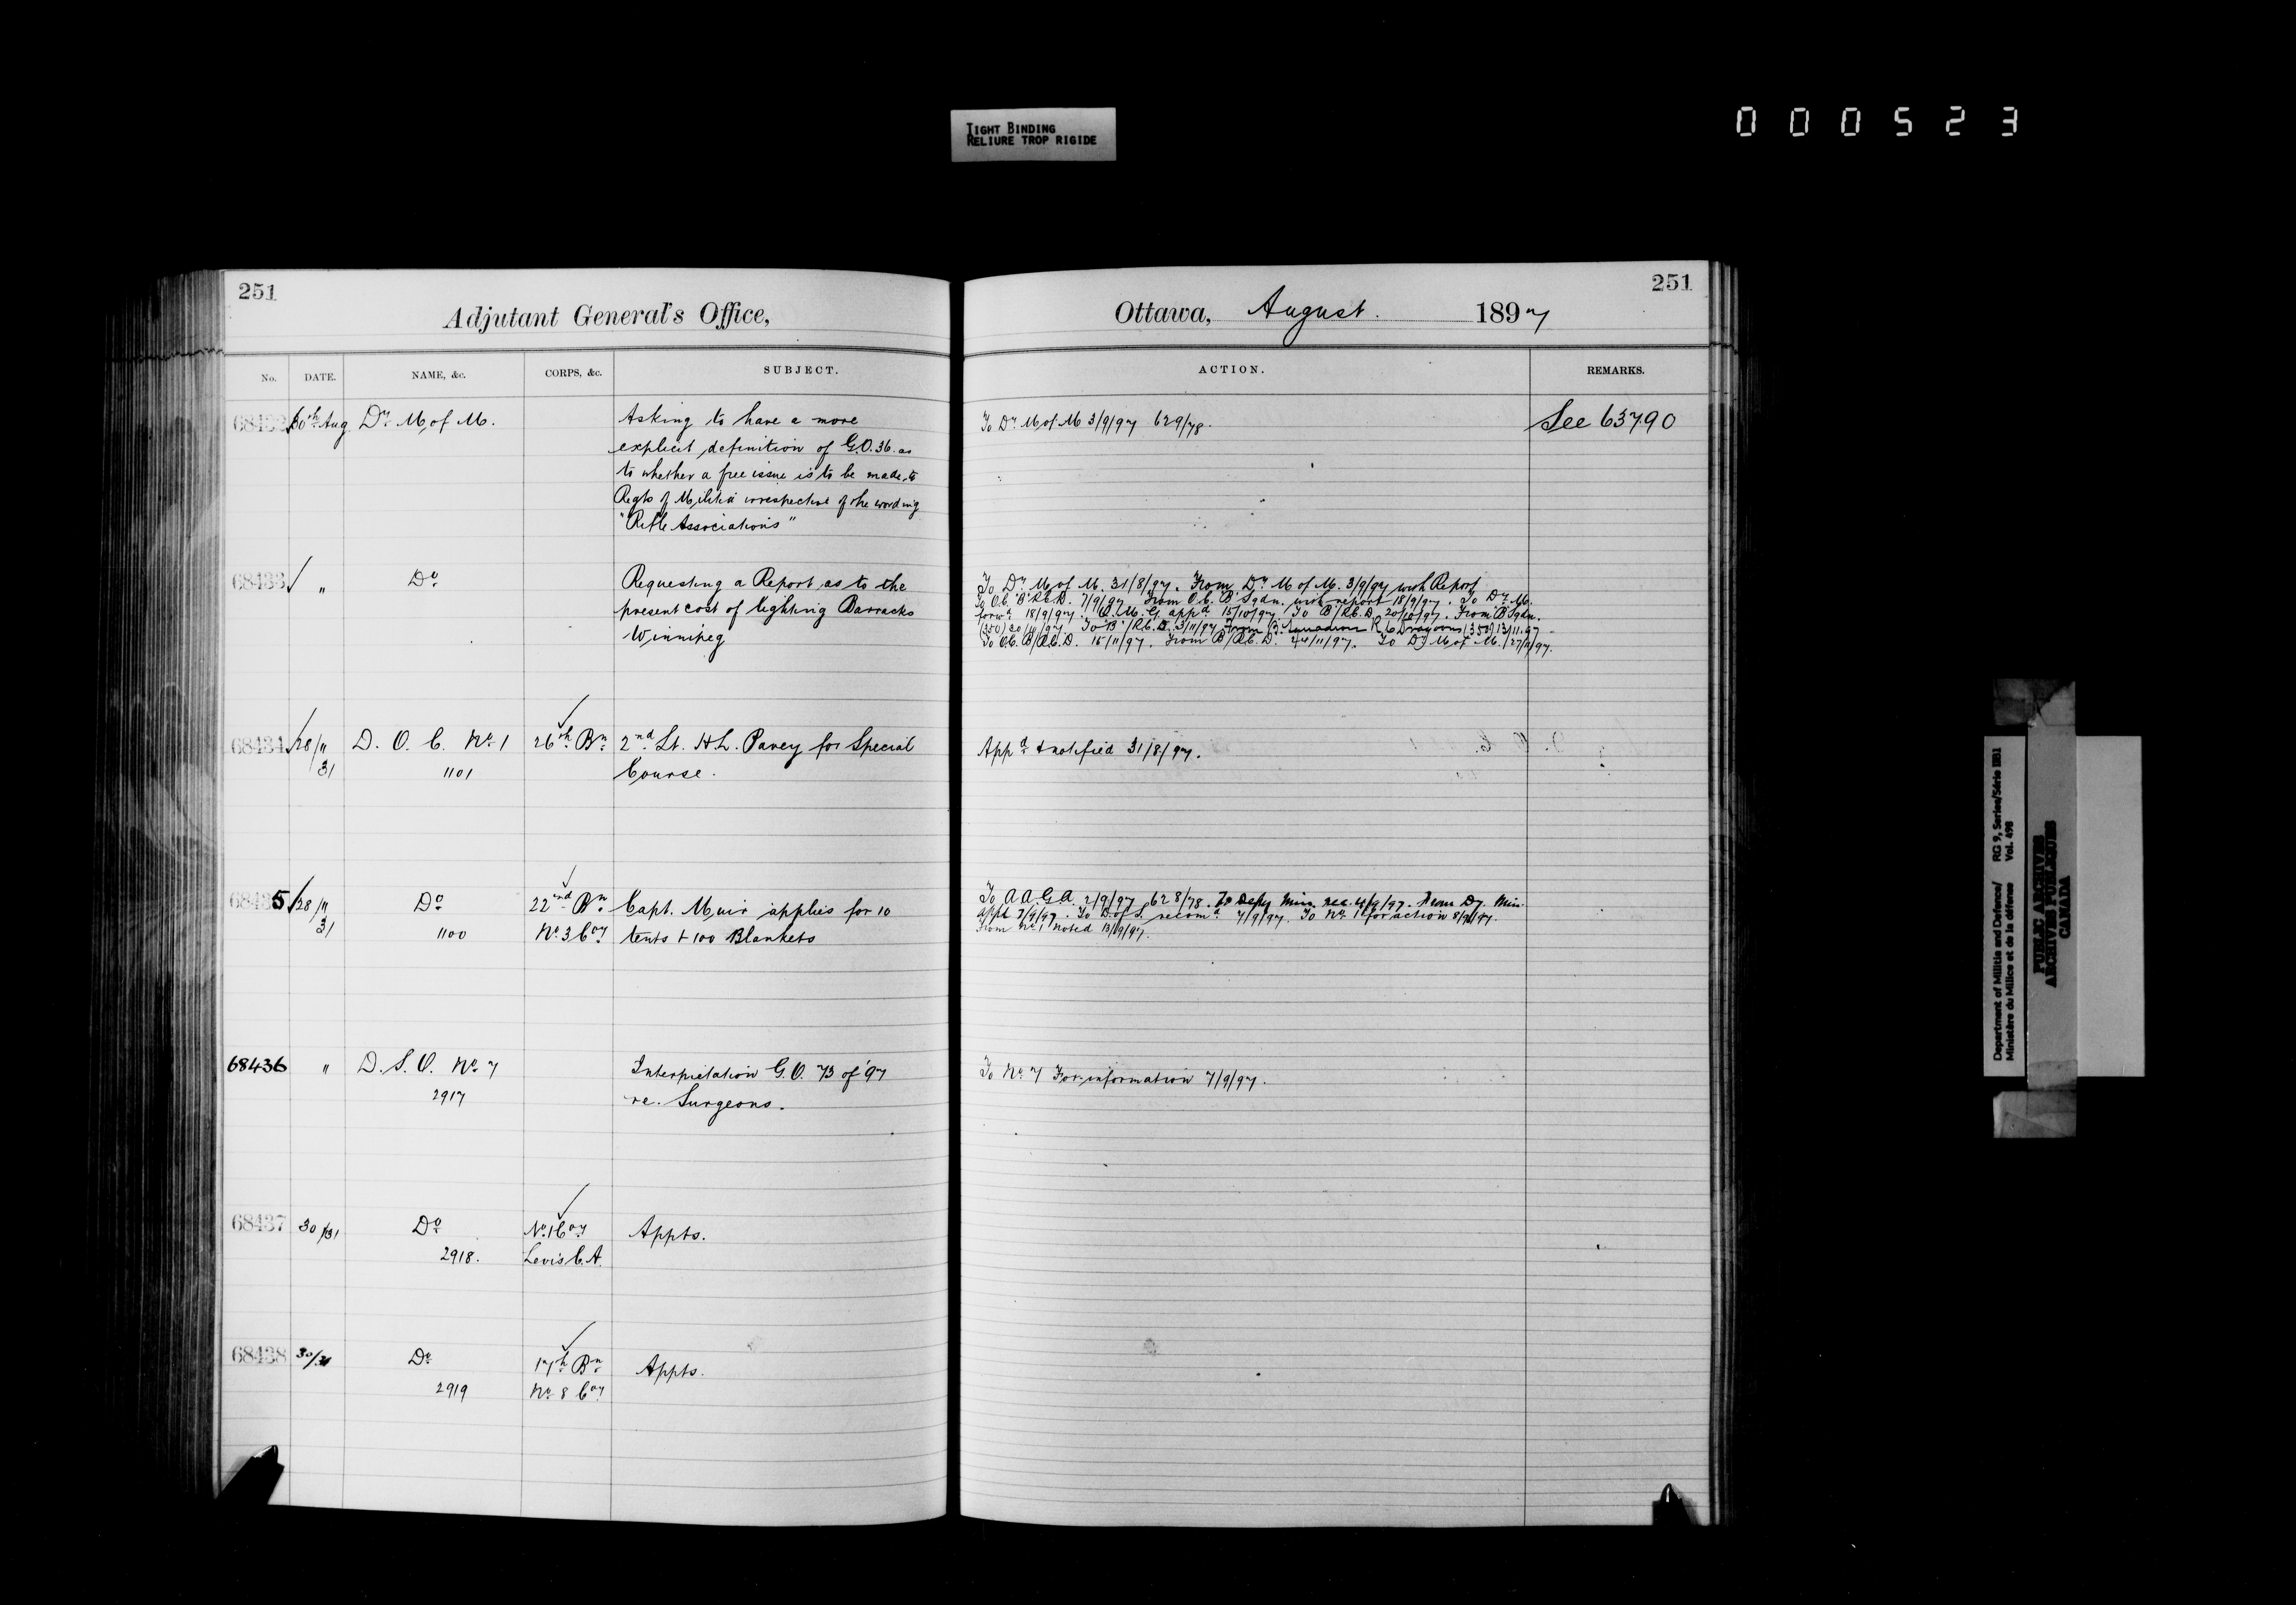 TIGHT BINDING
RELIURE TROP RIGIDE
000523
251
Adjutant General's Office,
No. DATE. NAME, &c. CORPS, &c. SUBJECT.
68432 30th Aug Dy M. of M. Asking to have a more
explicit definition of G.O. 36 as
to whether a free issue is to be made to
Regts of Militia irrespective of the wording
"Rifle Associations"
68433 " Do Requesting a Report as to the
present cost of lighting Barracks
Winnipeg
68434 28/31 D. O. C. No 1 26th Bn 2nd Lt. H.L. Pavey for Special
1101 Course.
68435 28/31 Do 22nd Bn Capt. Muir applies for 10
1100 No 3 Coy tents + 100 Blankets
68436 " D. S. O. No 7 Interpretation G.O. 73 of '97
2917 re. Surgeons.
68437 30/31 Do No 1 Coy Appts.
2918. Levis C.A.
68438 30/31 Do 17th Bn Appts.
2919 No 8 Coy
251
Ottawa, August. 1897
ACTION. REMARKS.
To Dy M of M 3/9/97 629/78. See 63790
To Dy M of M. 31/8/97. From Dy M of M. 3/9/97 with Report
To O.C. "B" R.C.D. 7/9/97 From O.C. "B" Sqdn. with report 18/9/97. To Dy M.
forwd 18/9/97 Q.M.G. appd 15/10/97 To "B"/R.C.D. 20/10/97. From "B" Sqdn.
(350) 30/10/97 To "B"/R.C.D. 3/11/97 From B Squadron R C Dragoons (350) 13/11.97
To O.C. B/R.C.D. 15/11/97. From B/R.C.D. 24/11/97. To Dy M of M. 27/11/97.
Appd & notified 31/8/97.
To A.A.G.A. 2/9/97 628/78. To Depy Min. rec. 4/9/97. From Dy. Min.
appd 7/9/97. To D. of S. recomd 7/9/97. To No 1 for action 8/9/97.
From No 1 noted 13/9/97.
To No 7 For information 7/9/97.
Department of Militia and Defence/ RG 9, Series/Série IIB1
Ministère du Milice et de la défense Vol. 498
PUBLIC ARCHIVES
ARCHIVES PUBLIQUES
CANADA